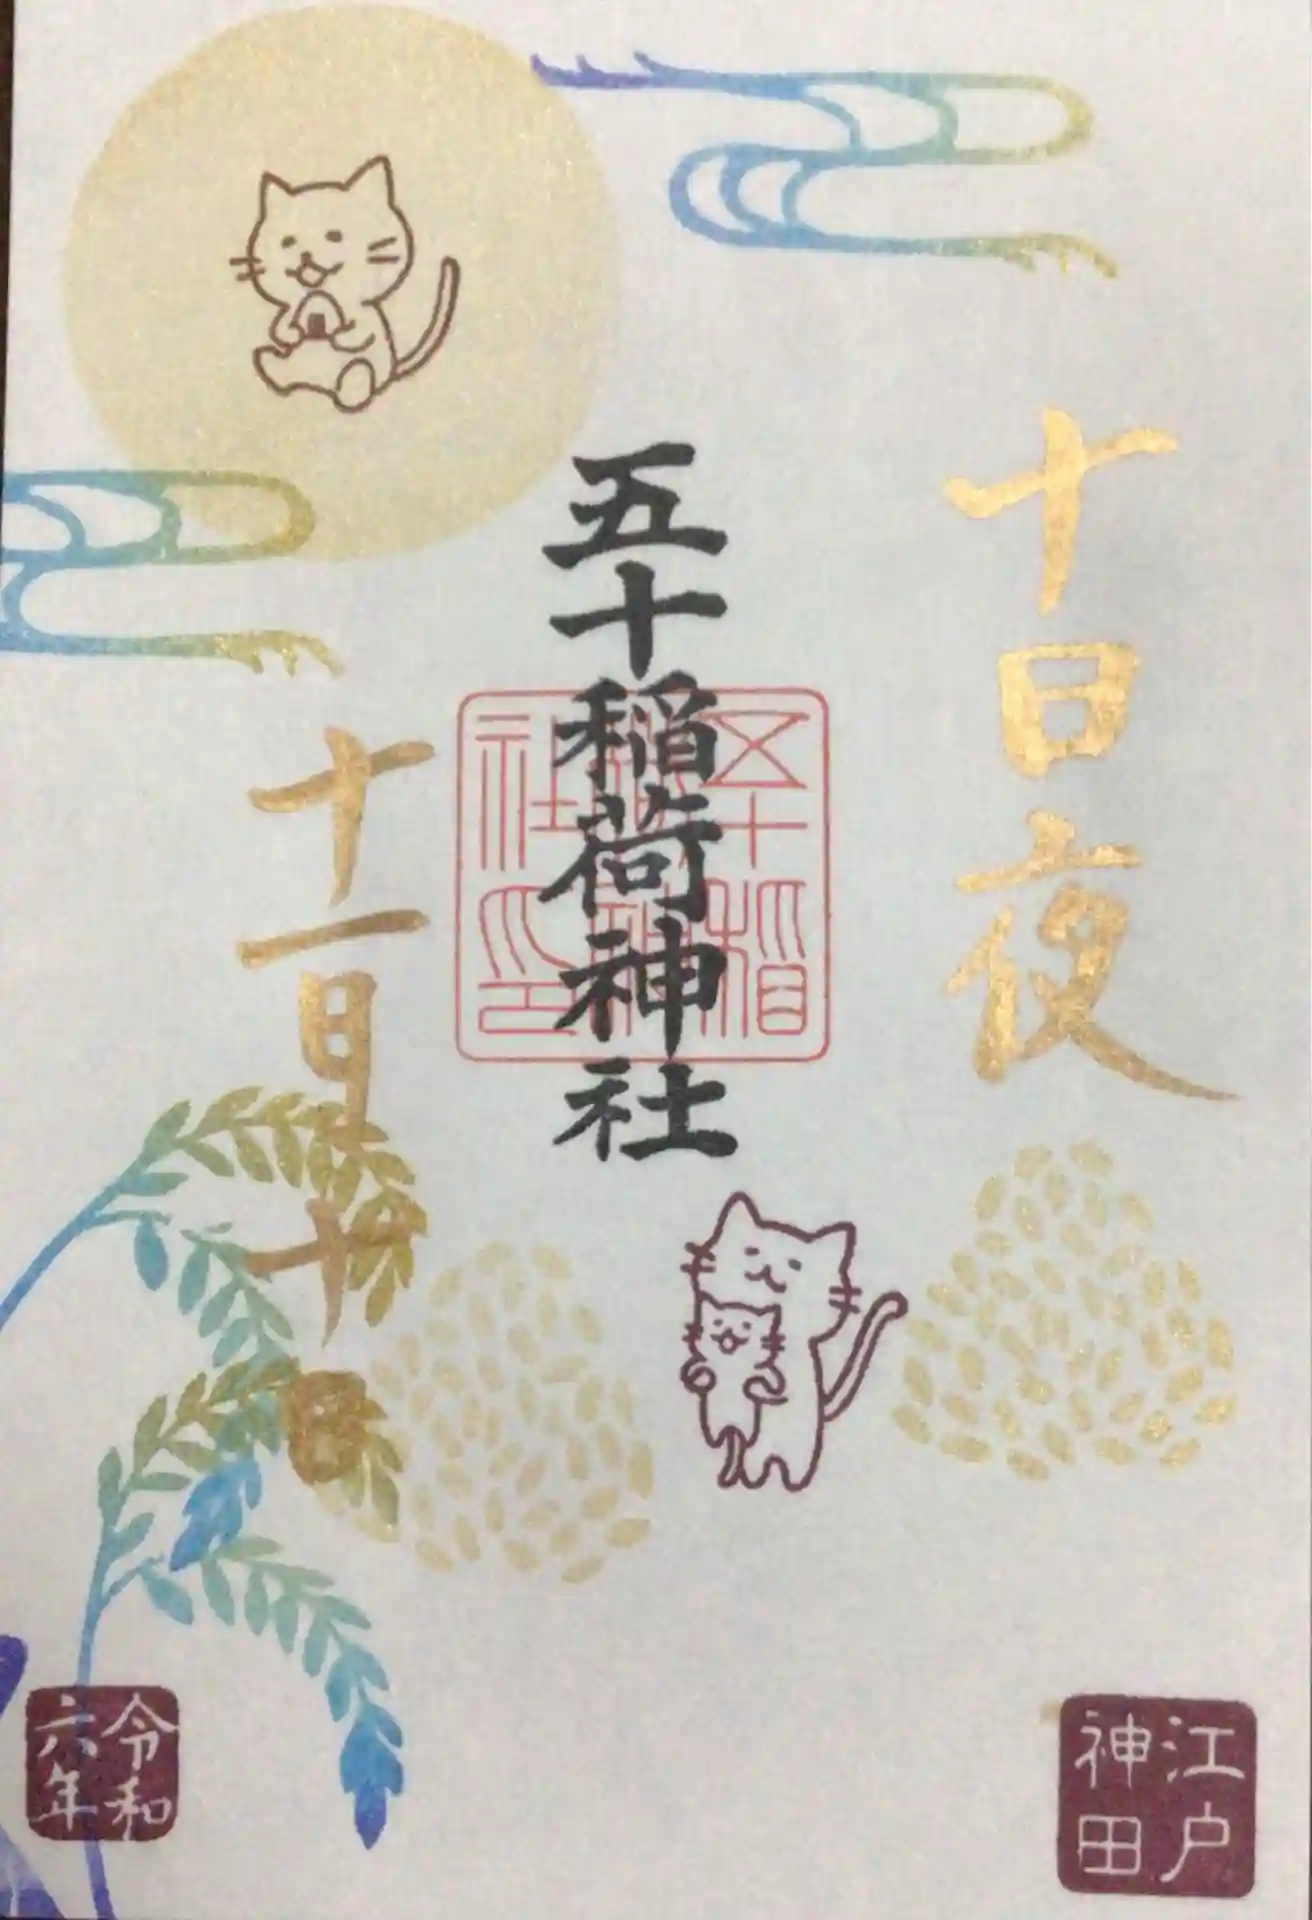 十日夜
五十稲荷神社
五十稲荷神社之印
十一月十日
江戸
神田
令和
六年